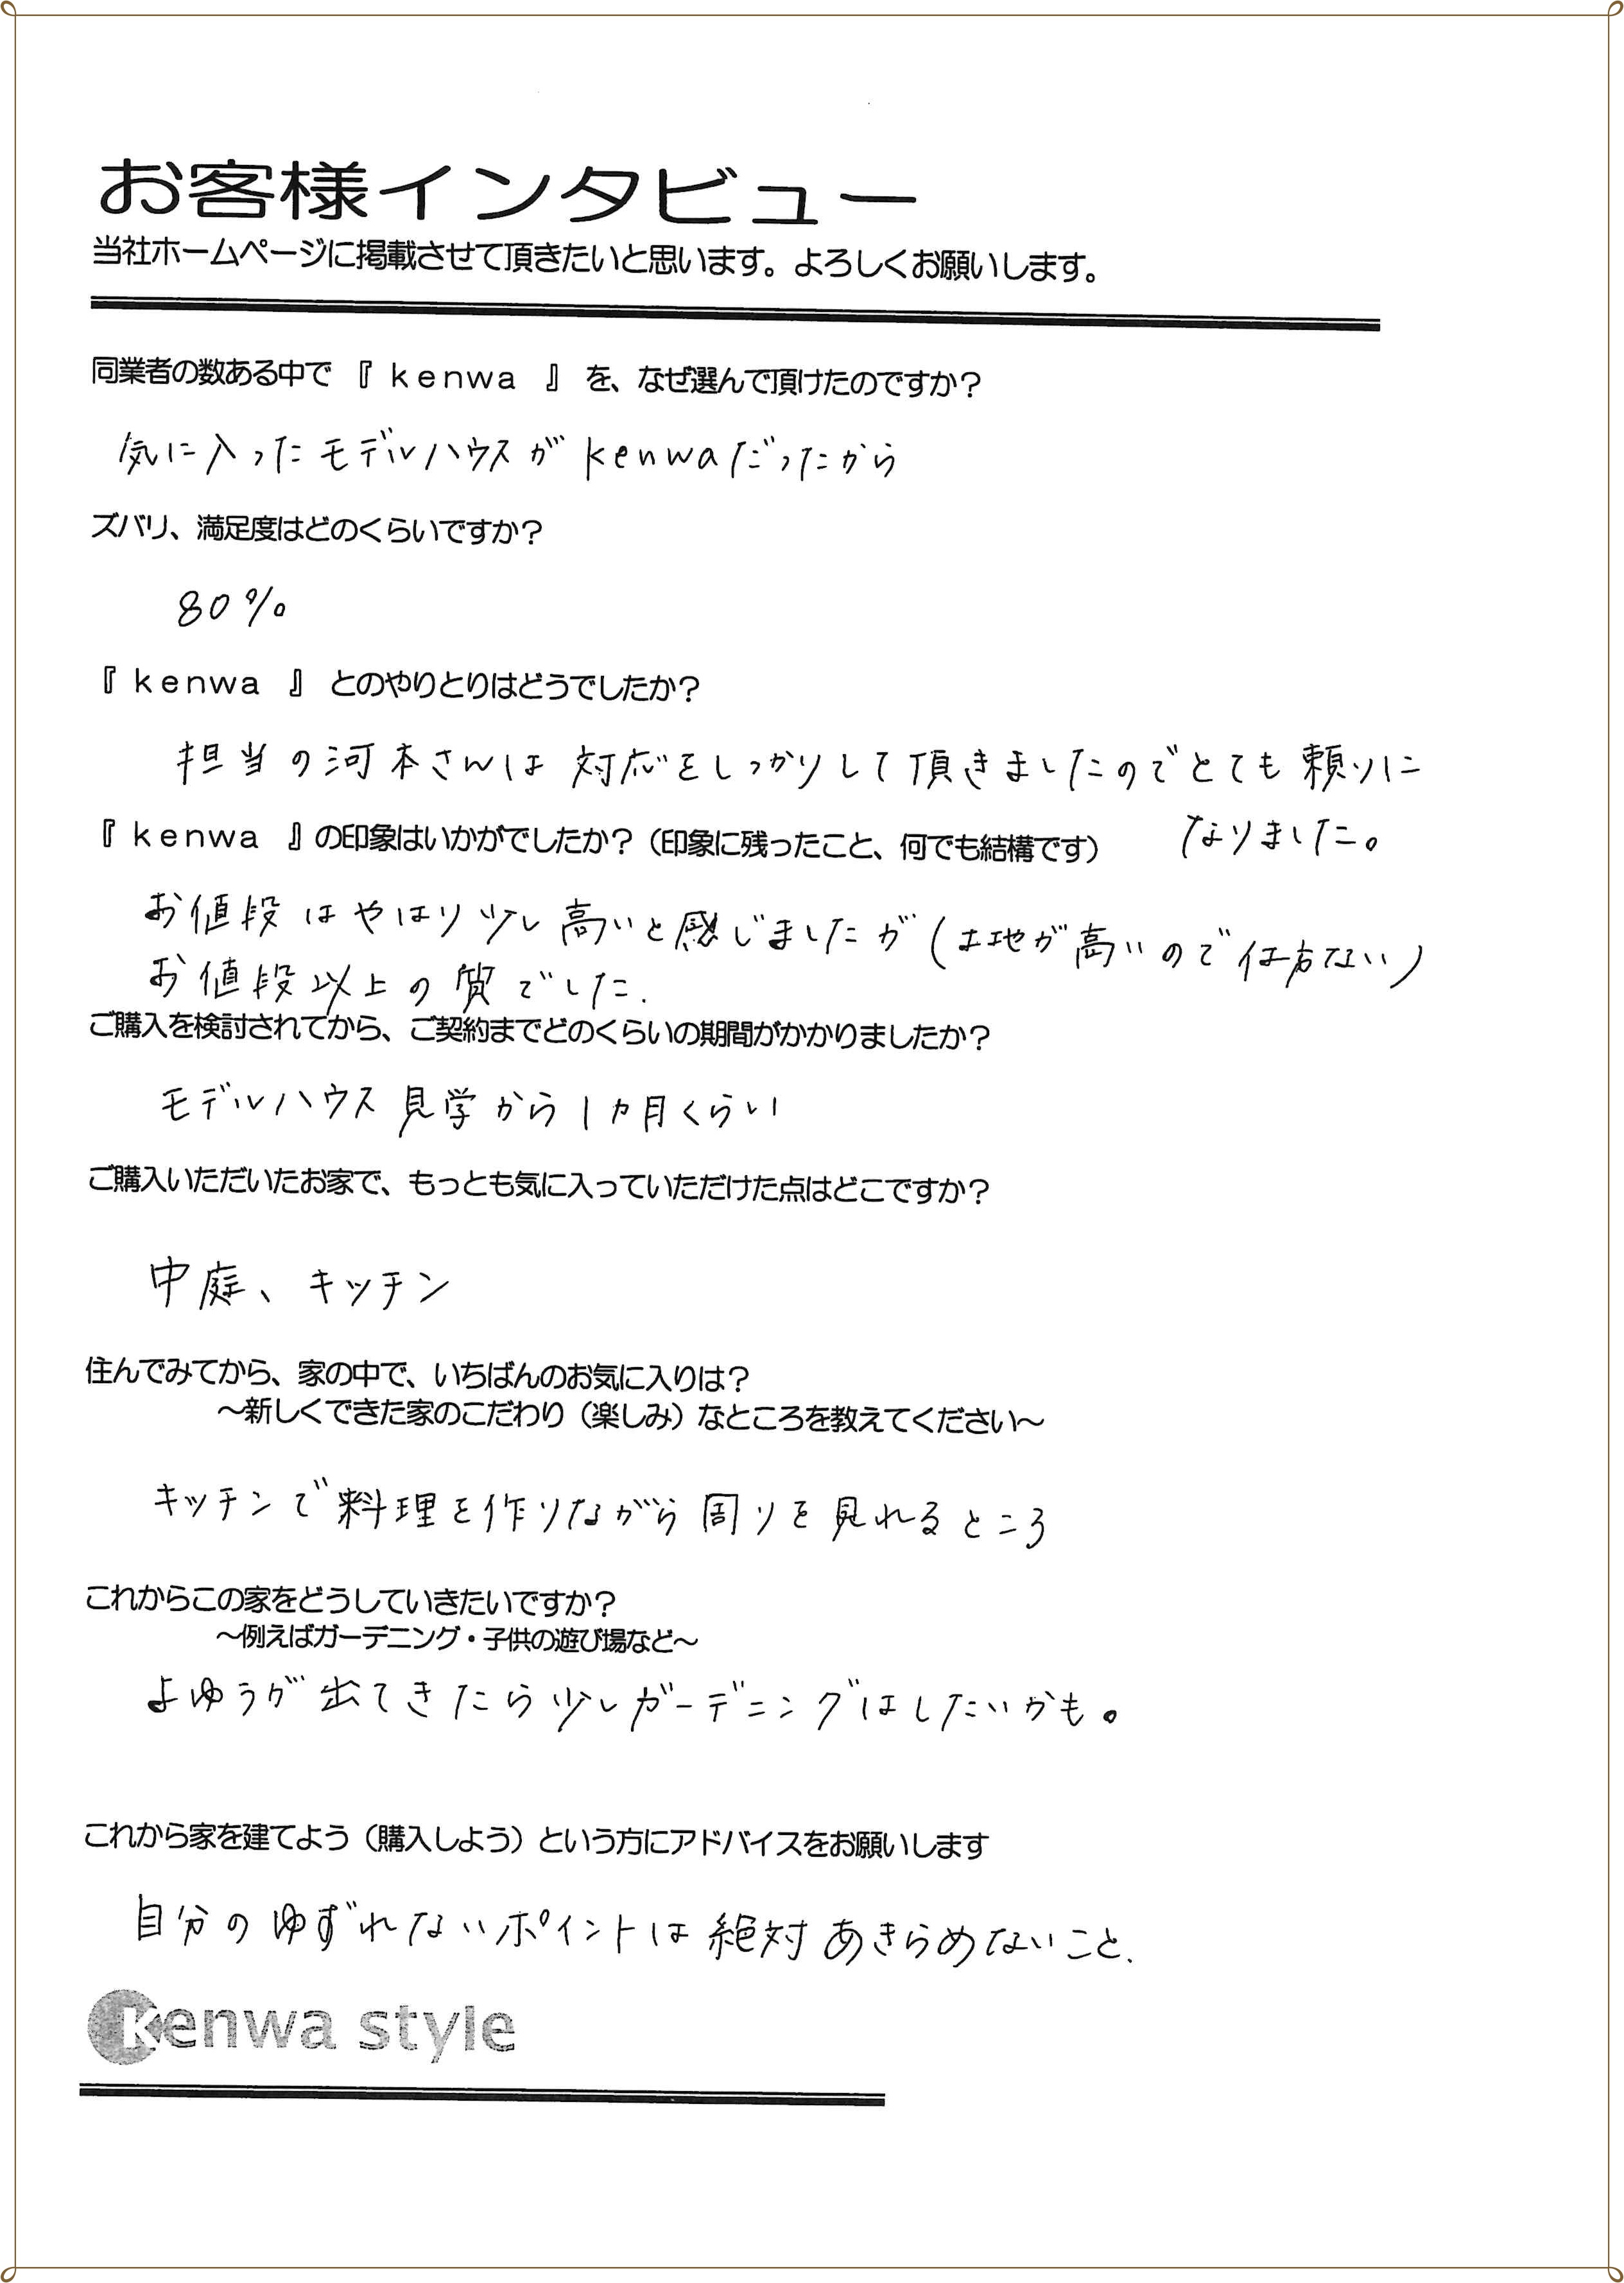 お客様インタビュー
当社ホームページに掲載させて頂きたいと思います。よろしくお願いします。
同業者の数ある中で 『 kenwa 』 を、なぜ選んで頂けたのですか？
気に入ったモデルハウスがkenwaだったから
ズバリ、満足度はどのくらいですか？
80％
『 kenwa 』 とのやりとりはどうでしたか？
担当の河本さんは対応をしっかりして頂きましたのでとても頼りに
なりました。
『 kenwa 』の印象はいかがでしたか？（印象に残ったこと、何でも結構です）
お値段はやはり少し高いと感じましたが（土地が高いので仕方ない）
お値段以上の質でした.
ご購入を検討されてから、ご契約までどのくらいの期間がかかりましたか？
モデルハウス見学から1カ月くらい
ご購入いただいたお家で、もっとも気に入っていただけた点はどこですか？
中庭、キッチン
住んでみてから、家の中で、いちばんのお気に入りは？
～新しくできた家のこだわり（楽しみ）なところを教えてください～
キッチンで料理を作りながら周りを見れるところ
これからこの家をどうしていきたいですか？
～例えばガーデニング・子供の遊び場など～
よゆうが出てきたら少しガーデニングはしたいかも。
これから家を建てよう（購入しよう）という方にアドバイスをお願いします
自分のゆずれないポイントは絶対あきらめないこと.
kenwa style